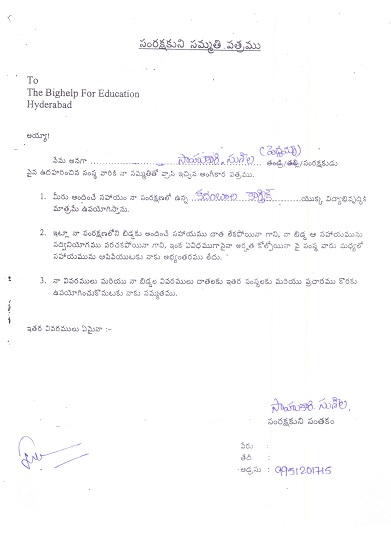 సంరక్షకుని సమ్మతి పత్రము
To
The Bighelp For Education
Hyderabad
అయ్యా!
(పెద్దమ్మ)
నేను అనగా ........ సాయకారి. సునీల ........ తండ్రి/తల్లి/సంరక్షకుడు
పైన ఉదహరించిన సంస్థ వారికి నా సమ్మతితో వ్రాసి ఇచ్చిన అంగీకార పత్రము.
1. మీరు అందించే సహాయం నా సంరక్షణలో ఉన్న ........ యొక్క విద్యాభివృద్ధికి
మాత్రమే ఉపయోగిస్తాను.
2. ఇట్లా నా సంరక్షణలోని బిడ్డకు అందించే సహాయము దాత లేకపోయినా గాని, నా బిడ్డ ఆ సహాయమును
సద్వినియోగము పరచకపోయినా గాని, ఇంక ఏవిధముగానైనా అర్హత కోల్పోయినా పై సంస్థ వారు మధ్యలో
సహాయమును ఆపివేయుటకు నాకు అభ్యంతరము లేదు.
3. నా వివరములు మరియు నా బిడ్డల వివరములు దాతలకు ఇతర సంస్థలకు మరియు ప్రచారము కొరకు
ఉపయోగించుకొనుటకు నాకు సమ్మతము.
ఇతర వివరములు ఏమైనా :-
సాయకారి సునీల.
సంరక్షకుని సంతకం
పేరు :
తేది :
అడ్రసు : 9951201715